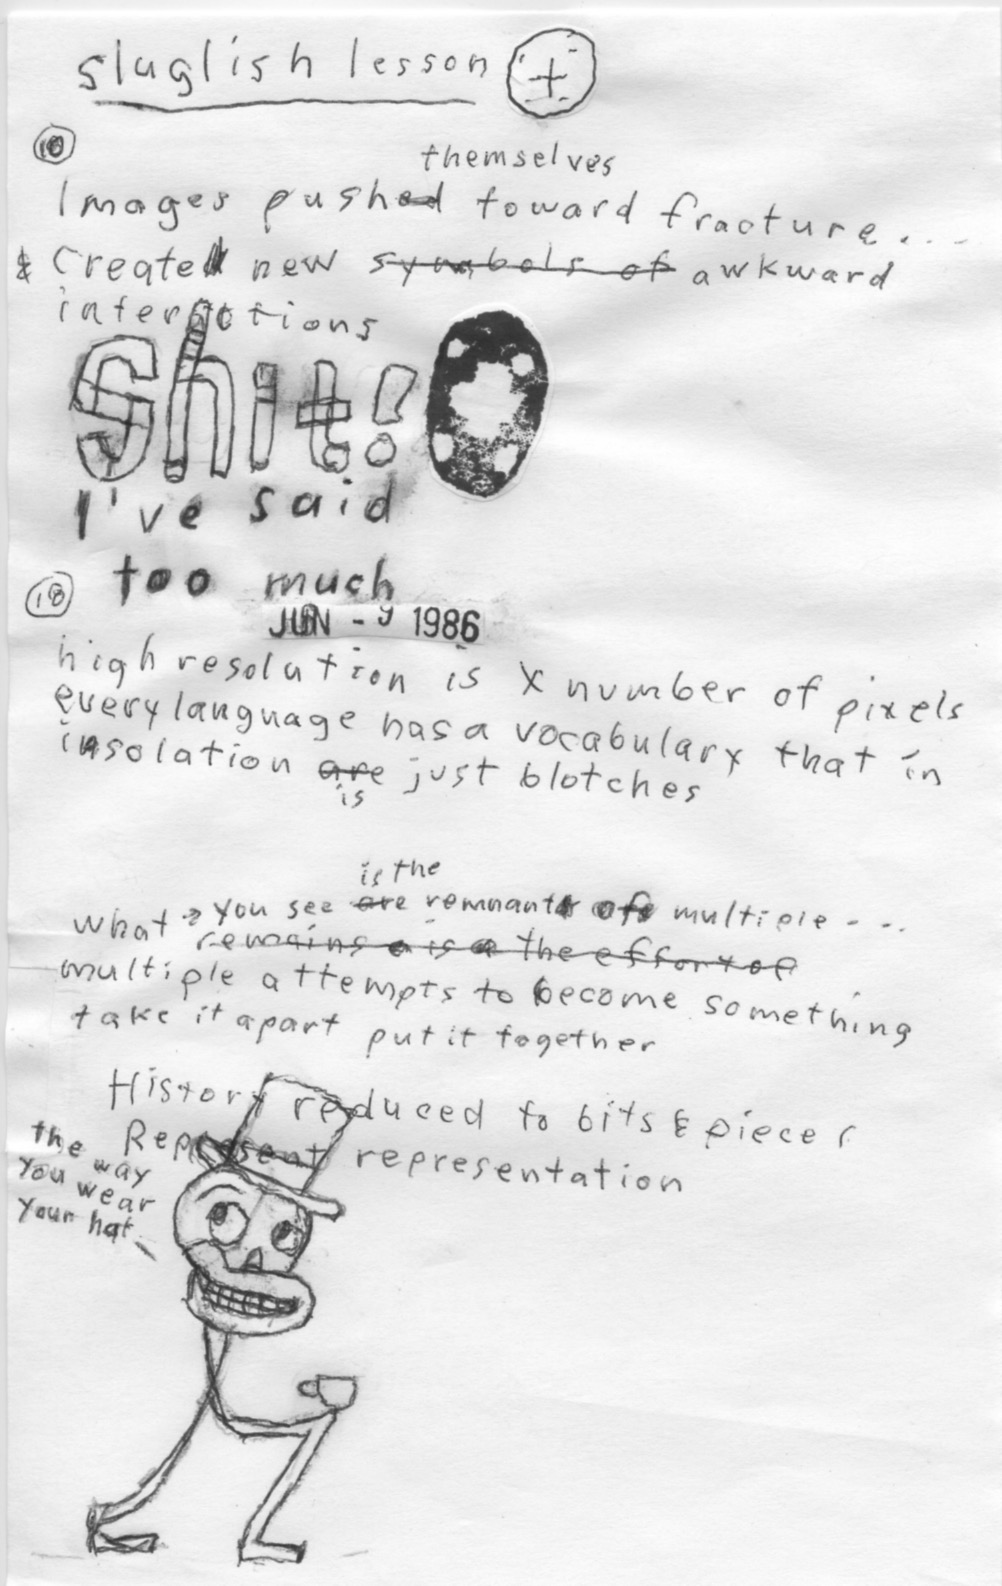 sluglish lesson +
10
themselves
Images pushed toward fracture....
& Created new symbols of awkward
interactions
shit!
I've said
too much
18
JUN - 9 1986
high resolution is X number of pixels
every language has a vocabulary that in
insolation are just blotches
is
is the
what → you see are remnants of multiple - ...
remains a is a the effort of
multiple attempts to become something
take it apart put it together
History reduced to bits & pieces
Represent representation
the way
you wear
your hat